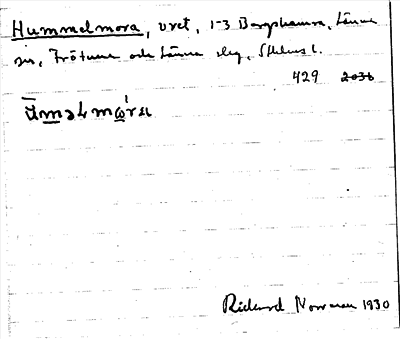 Hummelmora, vret, 1-3 Bergshamra, Länna
sn, Frötuna och Länna slg, Sthlms l.
429 2036
Richard Norrman 1930